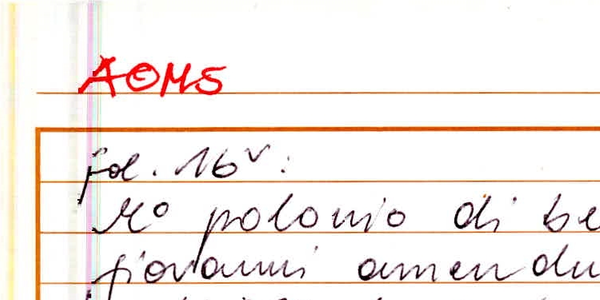 AOMS
fol. 16v:
Mo polonio di be
giovanni amendu